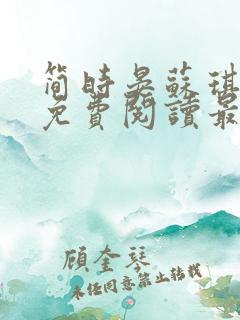 简時晏蘇琪
免費閱讀最
顧奎琴
未经同意禁止转载